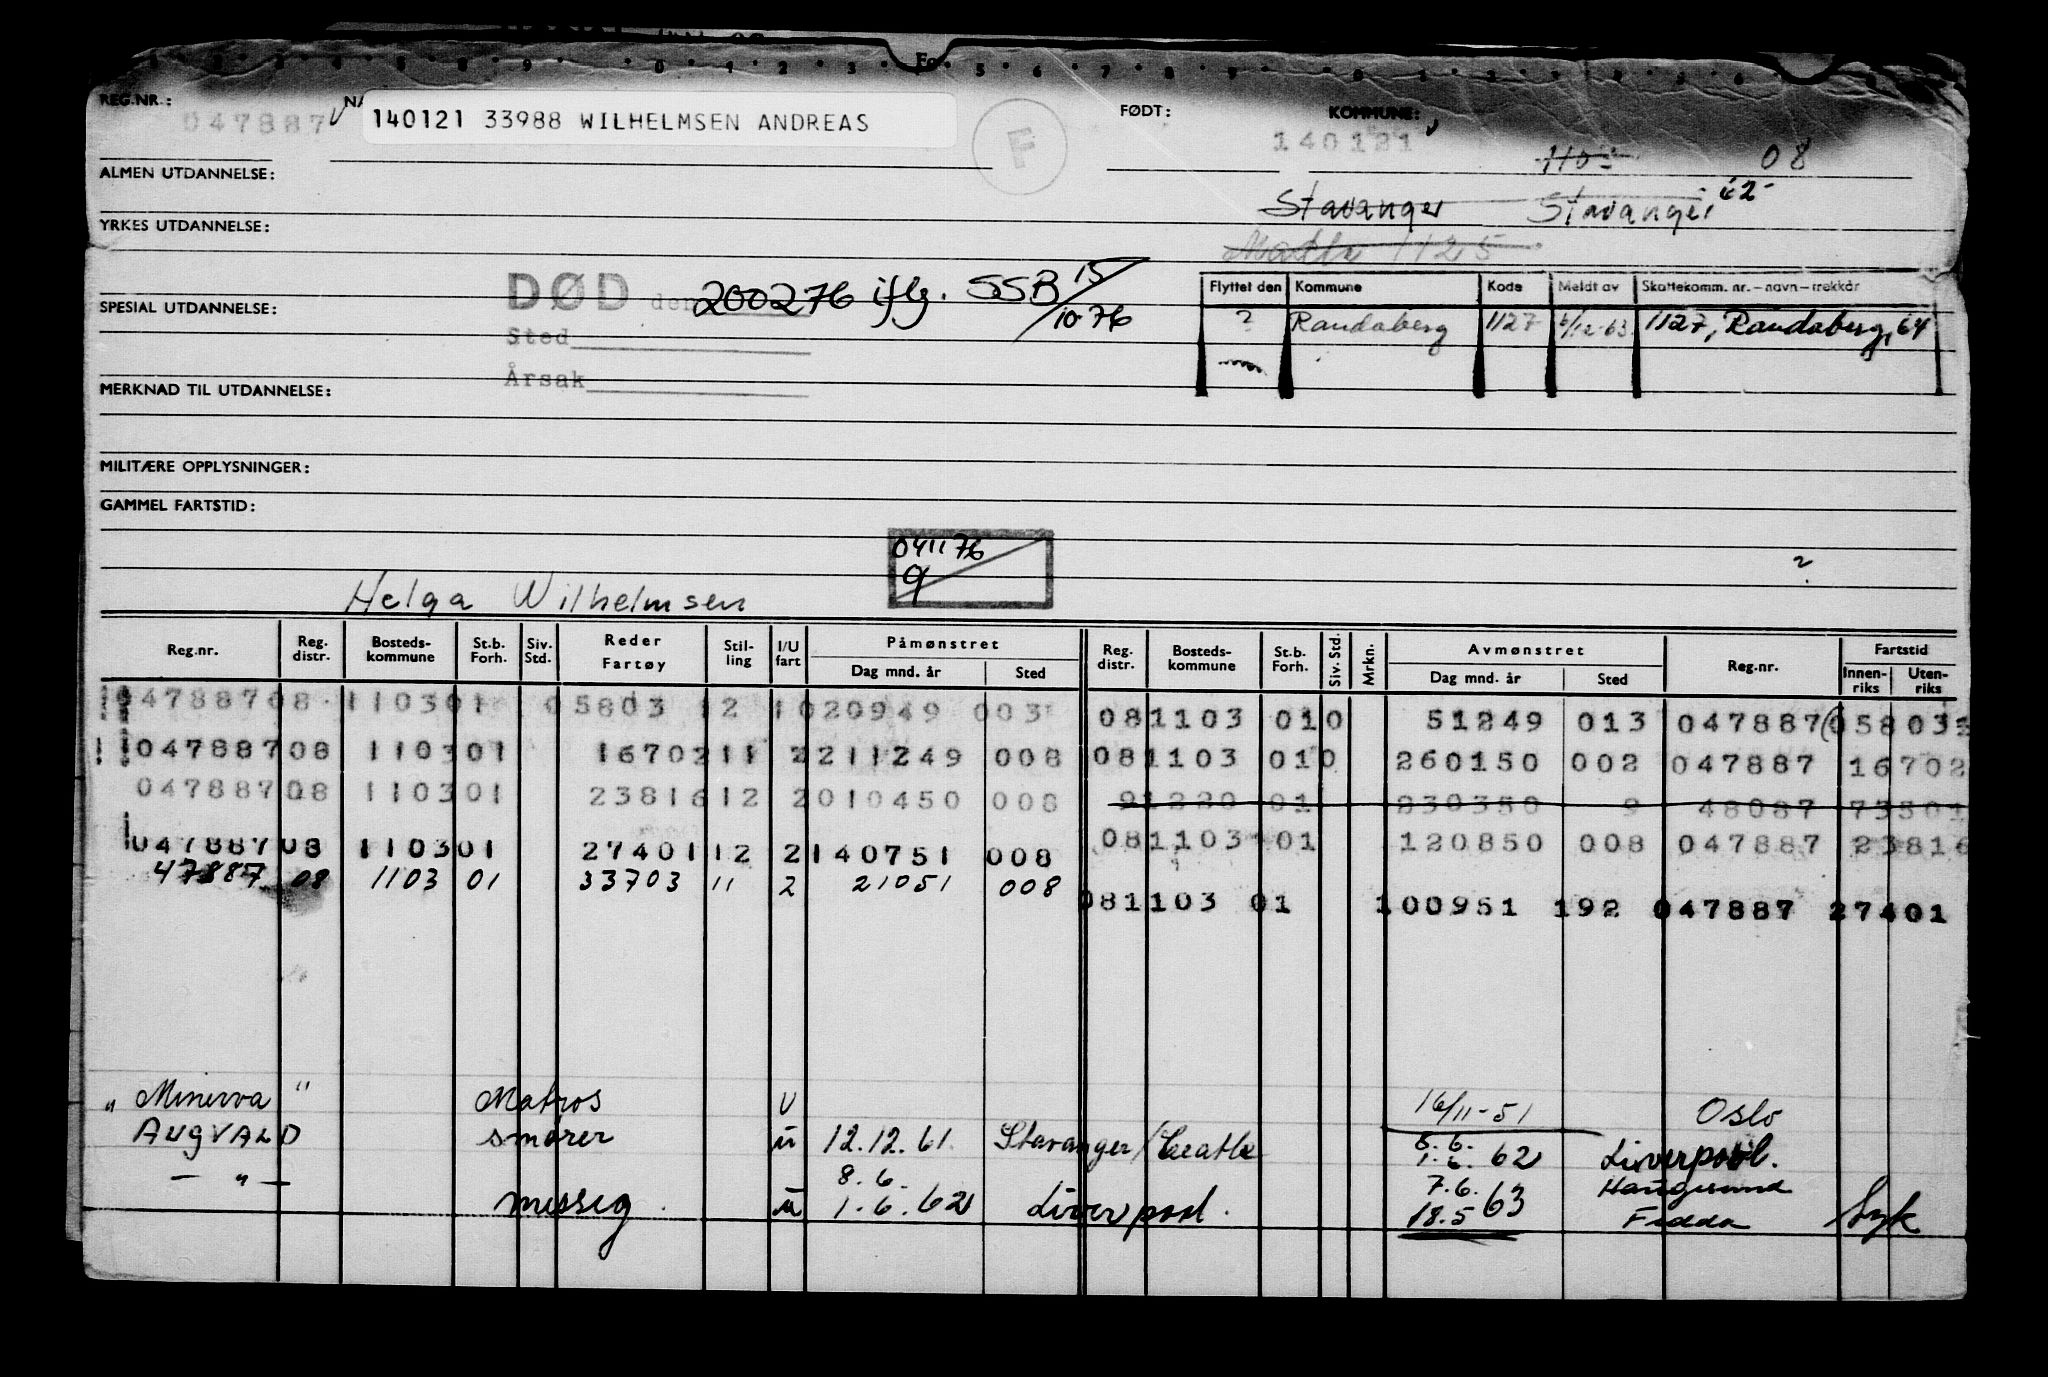 REG.NR.: 047887 140121 33988 WILHELMSEN ANDREAS F FØDT: 140121 KOMMUNE: 08
ALMEN UTDANNELSE:
Stavanger Stavanger
YRKES UTDANNELSE:
1125
SPESIAL UTDANNELSE: DØD den 200276 iflg. SSB 15/10 76
Sted
Årsak
Flyttet den Kommune Kode Meldt av Skattekomm. nr. – navn – trekkår
? Randaberg 1127 6/12-63 1127, Randaberg, 64
MERKNAD TIL UTDANNELSE:
MILITÆRE OPPLYSNINGER:
GAMMEL FARTSTID:
041176
9
?
Helga Wilhelmsen
Reg.nr. Reg. distr. Bosteds-kommune St.b. Forh. Siv. Std. Reder Fartøy Stil-ling I/U fart Påmønstret Dag mnd. år Sted Reg. distr. Bosteds-kommune St.b. Forh. Siv. Std. Mrkn. Avmønstret Dag mnd. år Sted Reg.nr. Fartstid Innen-riks Uten-riks
047887 08 1103 01 05803 12 1 020949 003 08 1103 01 0 51249 013 047887 05803
047887 08 1103 01 16702 11 2 211249 008 08 1103 01 0 260150 002 047887 16702
047887 08 1103 01 23816 12 2 010450 008 9 1220 01 230350 9 48087 73501
08 1103 01 120850 008 047887 23816
047887 08 1103 01 27401 12 2 140751 008
47887 08 1103 01 33703 11 2 21051 008
08 1103 01 100951 192 047887 27401
"Minerva" Matros U 16/11-51 Oslo
AUGVALD smører u 12.12.61 Stavanger/Seatle 8.6. 1.6. 62 Liverpool.
— " — messeg. u 8.6. 1.6.62 Liverpool. 7.6. 18.5 63 Haugesund Fedda Syk